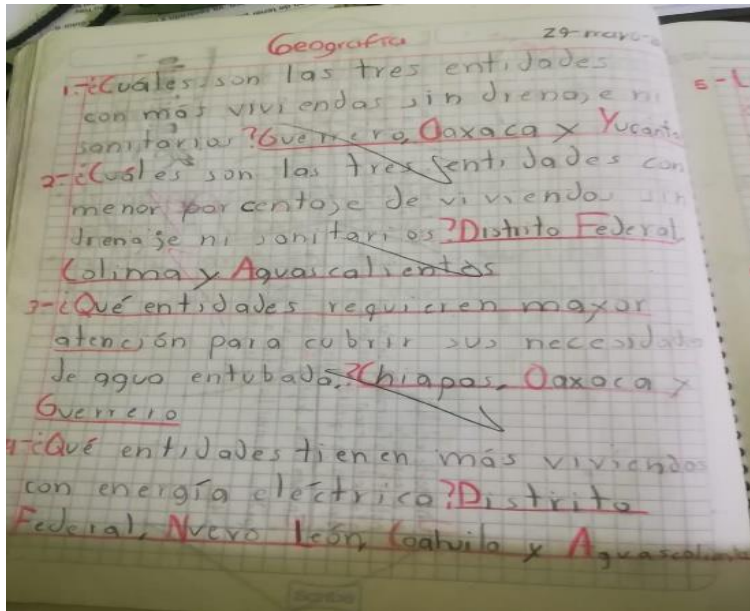 Geografía
1-¿Cuáles son las tres entidades
con más viviendas sin drenaje ni
sanitarios?Guerrero, Oaxaca y
2-¿Cuáles son las tres entidades con
menor porcentaje de viviendas sin
drenaje ni sanitarios?Distrito Federal
Colima y Aguascalientes
3-¿Qué entidades requieren mayor
atención para cubrir sus necesidades
de agua entubada?Chiapas, Oaxaca y
Guerrero
4-¿Qué entidades tienen más viviendas
con energía eléctrica?Distrito
Federal, Nuevo León, Coahuila y
5-